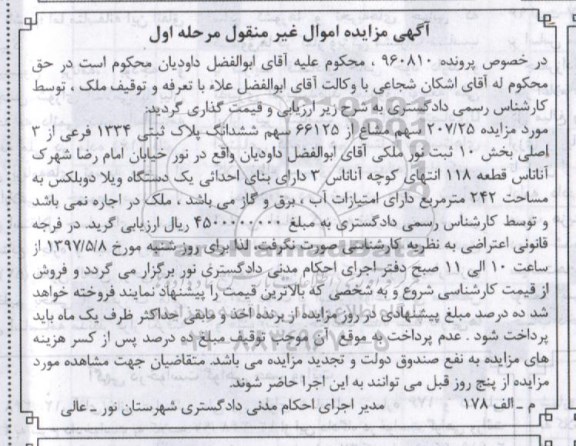 آگهی مزایده اموال غیر منقول مرحله اول
در خصوص پرونده ۹۶۰۸۱۰ ، محکوم علیه آقای ابوالفضل داودیان محکوم است در حق
محکوم له آقای اشکان شجاعی با وکالت آقای ابوالفضل علاء با تعرفه و توقیف ملک ، توسط
کارشناس رسمی دادگستری به شرح زیر ارزیابی و قیمت گذاری گردید:
مورد مزایده ۲۰۷/۲۵ سهم مشاع از ۶۶۱۲۵ سهم ششدانگ پلاک ثبتی ۱۳۳۴ فرعی از ۳
اصلی بخش ۱۰ ثبت نور ملکی آقای ابوالفضل داودیان واقع در نور خیابان امام رضا شهرک
آناناس قطعه ۱۱۸ انتهای کوچه آناناس ۳ دارای بنای احداثی یک دستگاه ویلا دوبلکس به
مساحت ۲۴۲ مترمربع دارای امتیازات آب ، برق و گاز می باشد ، ملک در اجاره نمی باشد
و توسط کارشناس رسمی دادگستری به مبلغ ۴۵۰۰۰۰۰۰۰۰ ریال ارزیابی گرید. در فرجه
قانونی اعتراضی به نظریه کارشناسی صورت نگرفت. لذا برای روز شنبه مورخ ۱۳۹۷/۵/۸ از
ساعت ۱۰ الی ۱۱ صبح دفتر اجرای احکام مدنی دادگستری نور برگزار می گردد و فروش
از قیمت کارشناسی شروع و به شخصی که بالاترین قیمت را پیشنهاد نمایند فروخته خواهد
شد ده درصد مبلغ پیشنهادی در روز مزایده از برنده اخذ و مابقی حداکثر ظرف یک ماه باید
پرداخت شود . عدم پرداخت به موقع آن موجب توقیف مبلغ ده درصد پس از کسر هزینه
های مزایده به نفع صندوق دولت و تجدید مزایده می باشد. متقاضیان جهت مشاهده مورد
مزایده از پنج روز قبل می توانند به این اجرا حاضر شوند.
م ـ الف ۱۷۸ مدیر اجرای احکام مدنی دادگستری شهرستان نور ـ عالی